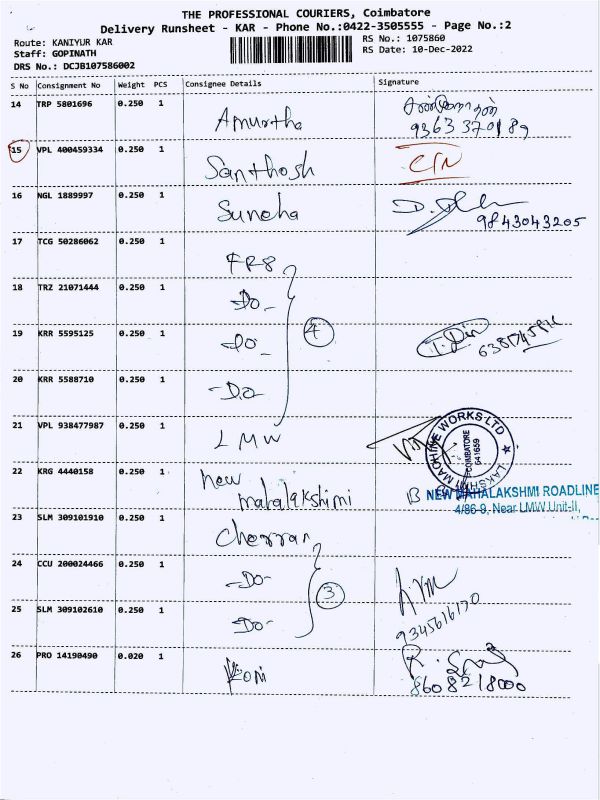 THE PROFESSIONAL COURIERS, Coimbatore
Delivery Runsheet - KAR - Phone No.:0422-3505555 - Page No.:2
Route: KANIYUR KAR
RS No.: 1075860
Staff: GOPINATH
RS Date: 10-Dec-2022
DRS No.: DCJB107586002
S No Consignment No Weight PCS Consignee Details Signature
14 TRP 5801696 0.250 1 Amurtha
9363370189
15 VPL 400459334 0.250 1 Santhosh
16 NGL 1889997 0.250 1 Suneha
9843043205
17 TCG 50286062 0.250 1 FR8
18 TRZ 21071444 0.250 1 -Do-
19 KRR 5595125 0.250 1 -Do-
4
20 KRR 5588710 0.250 1 -Do
21 VPL 938477987 0.250 1 LMW
LAKSHMI MACHINE WORKS LTD
COIMBATORE
641659
22 KRG 4440158 0.250 1 New
mahalakshimi
NEW MAHALAKSHMI ROADLINE
4/86-9, Near LMW Unit-II,
23 SLM 309101910 0.250 1 Cherran
24 CCU 200024466 0.250 1 -Do-
3
25 SLM 309102610 0.250 1 Do-
9345616170
26 PRO 14190490 0.020 1 Roni
8608218000